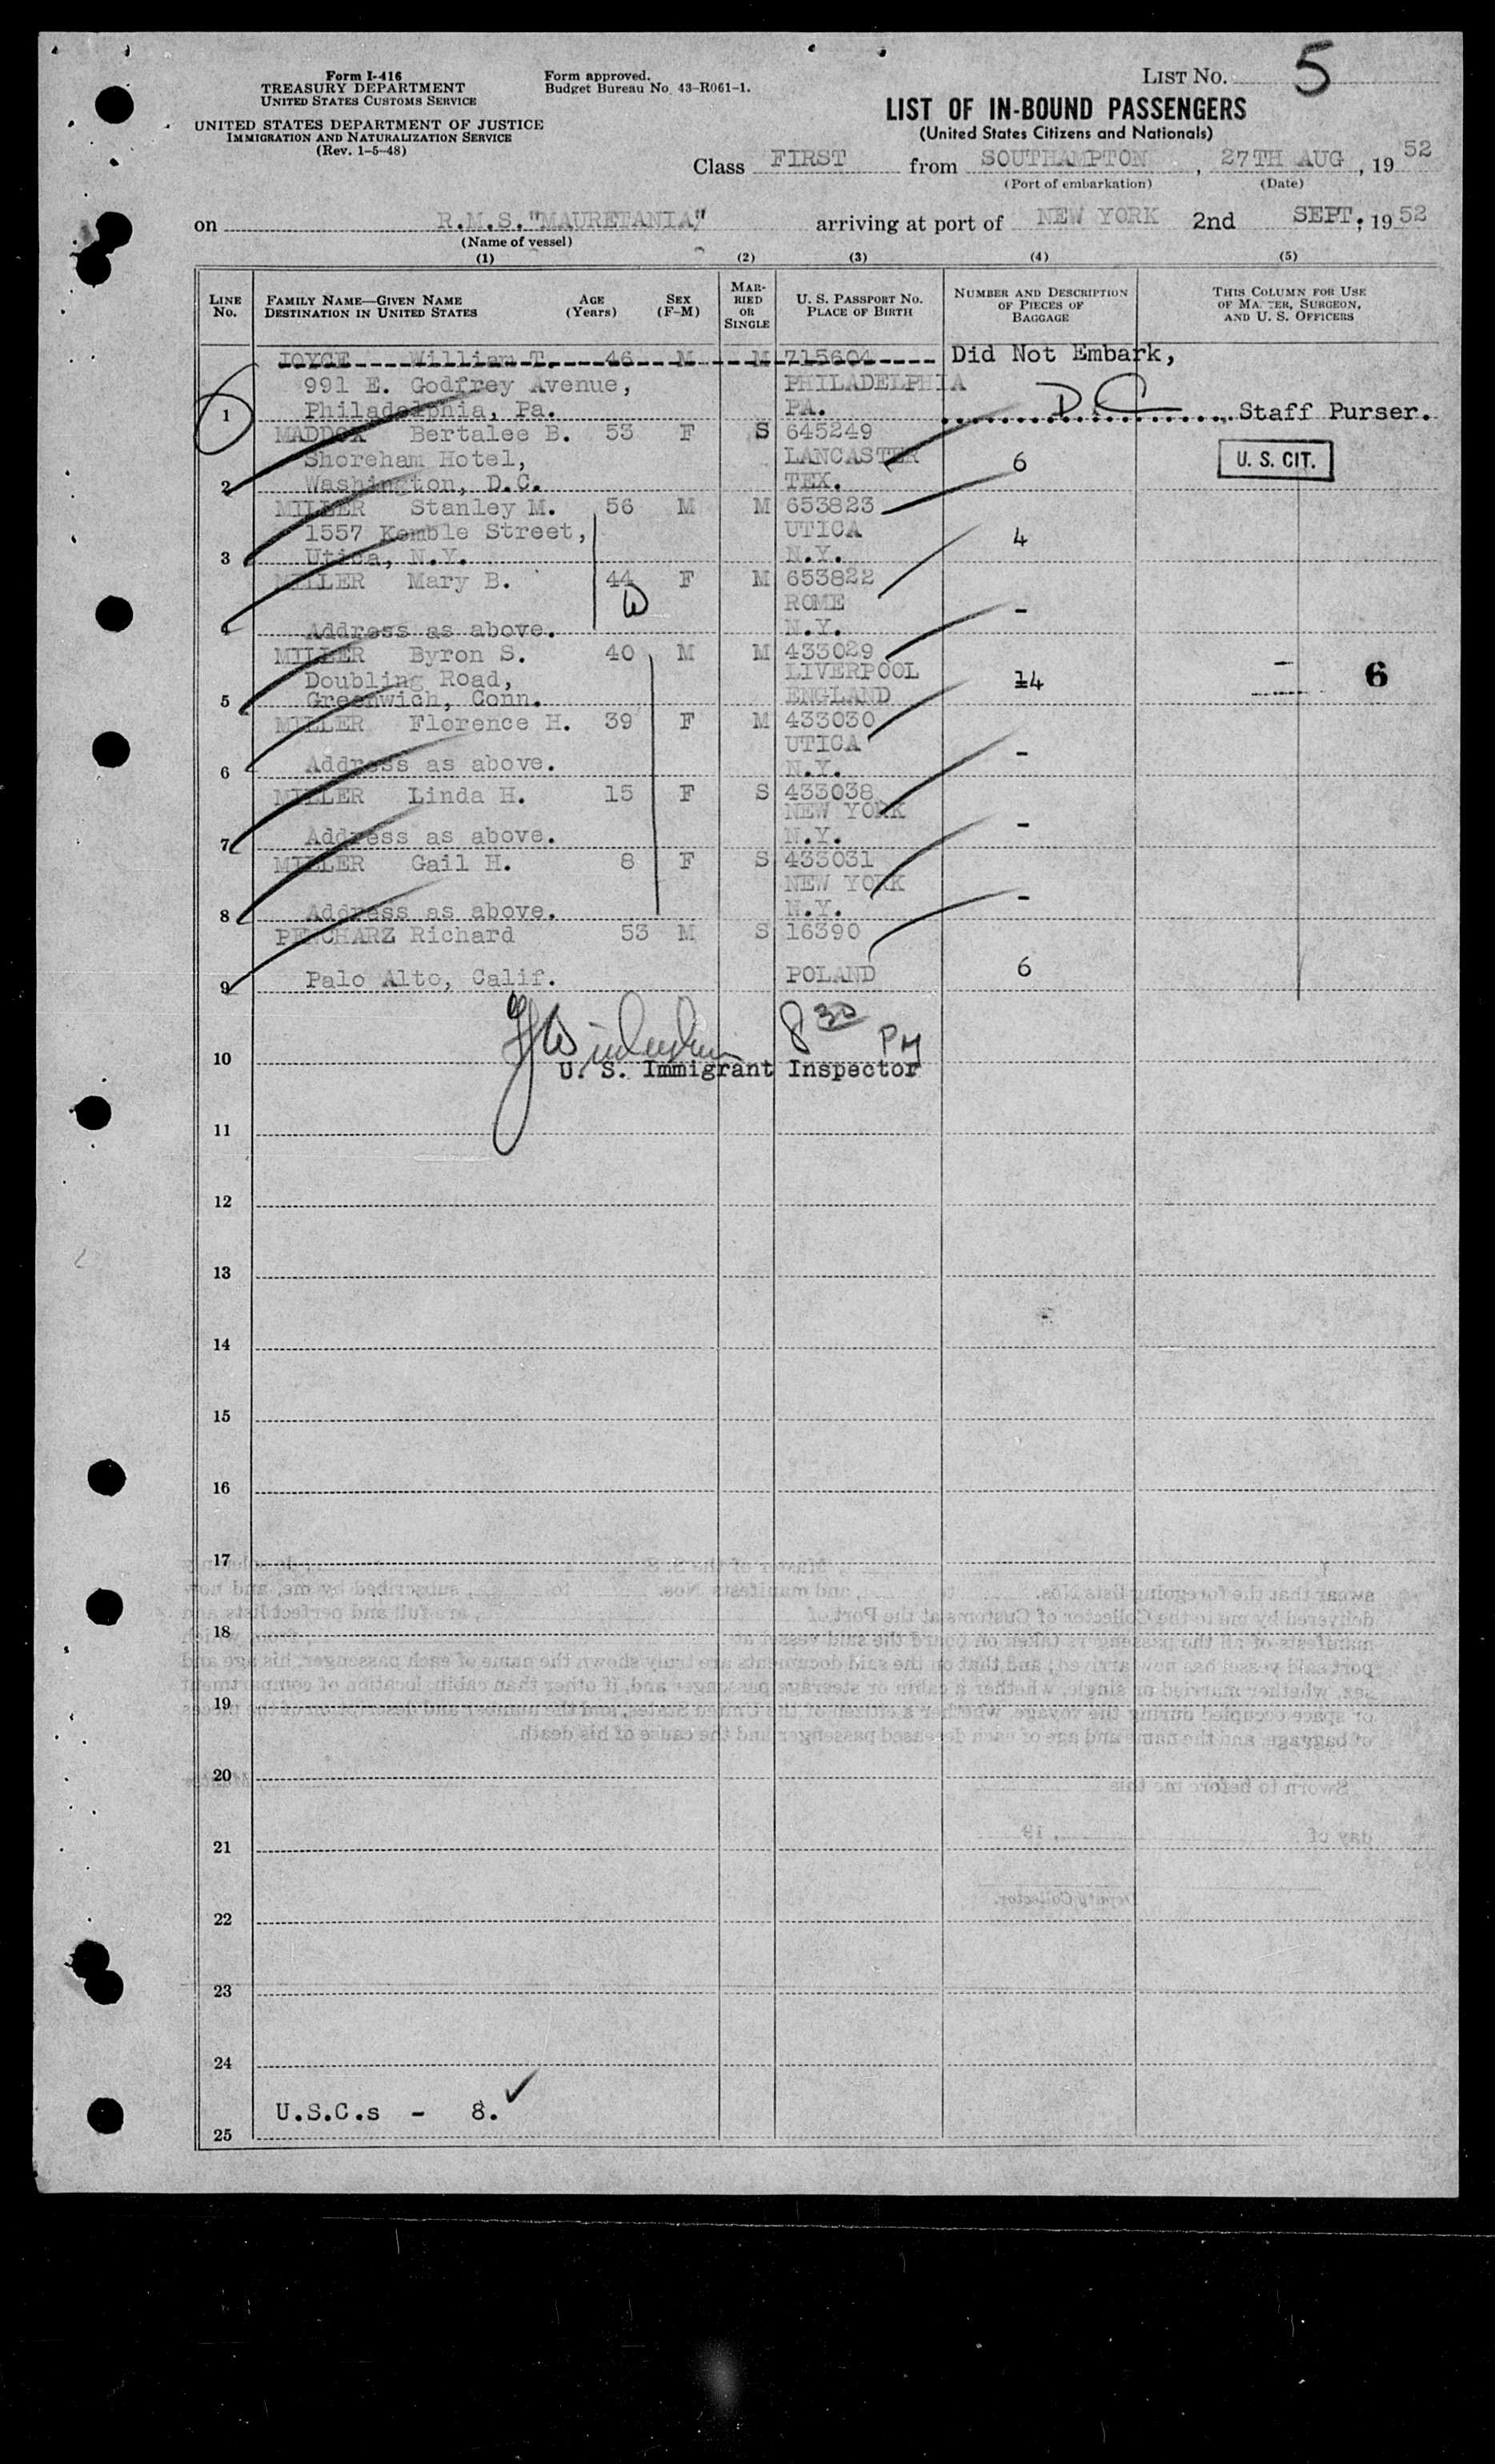 Form I-416
TREASURY DEPARTMENT
UNITED STATES CUSTOMS SERVICE
UNITED STATES DEPARTMENT OF JUSTICE
IMMIGRATION AND NATURALIZATION SERVICE
(Rev. 1-5-48)
Form approved.
Budget Bureau No. 43-R061-1.
LIST NO. 5
LIST OF IN-BOUND PASSENGERS
(United States Citizens and Nationals)
Class FIRST from SOUTHAMPTON, 27TH AUG, 1952
(Port of embarkation) (Date)
on R.M.S."MAURETANIA" arriving at port of NEW YORK 2nd SEPT. 1952
(Name of vessel)
(1) (2) (3) (4) (5)
LINE NO.
FAMILY NAME—GIVEN NAME
DESTINATION IN UNITED STATES
AGE (Years)
SEX (F-M)
MARRIED OR SINGLE
U. S. PASSPORT NO.
PLACE OF BIRTH
NUMBER AND DESCRIPTION OF PIECES OF BAGGAGE
THIS COLUMN FOR USE OF MASTER, SURGEON, AND U. S. OFFICERS
JOYCE William T. 46 M M 715604 Did Not Embark,
991 E. Godfrey Avenue, PHILADELPHIA
1 Philadelphia, Pa. PA. Staff Purser.
MADDOX Bertalee B. 53 F S 645249
Shoreham Hotel, LANCASTER 6 U. S. CIT.
2 Washington, D.C. TEX.
MILLER Stanley M. 56 M M 653823
1557 Kemble Street, UTICA 4
3 Utica, N.Y. N.Y.
MILLER Mary B. 44 F M 653822
ROME -
4 Address as above. N.Y.
MILLER Byron S. 40 M M 433029
Doubling Road, LIVERPOOL 14 - 6
5 Greenwich, Conn. ENGLAND
MILLER Florence H. 39 F M 433030
UTICA -
6 Address as above. N.Y.
MILLER Linda H. 15 F S 433038
NEW YORK -
7 Address as above. N.Y.
MILLER Gail H. 8 F S 433031
NEW YORK -
8 Address as above. N.Y.
PENCHARZ Richard 53 M S 16390
9 Palo Alto, Calif. POLAND 6
8 30 PM
10 U. S. Immigrant Inspector
11
12
13
14
15
16
17
18
19
20
21
22
23
24
U.S.C.s - 8.
25